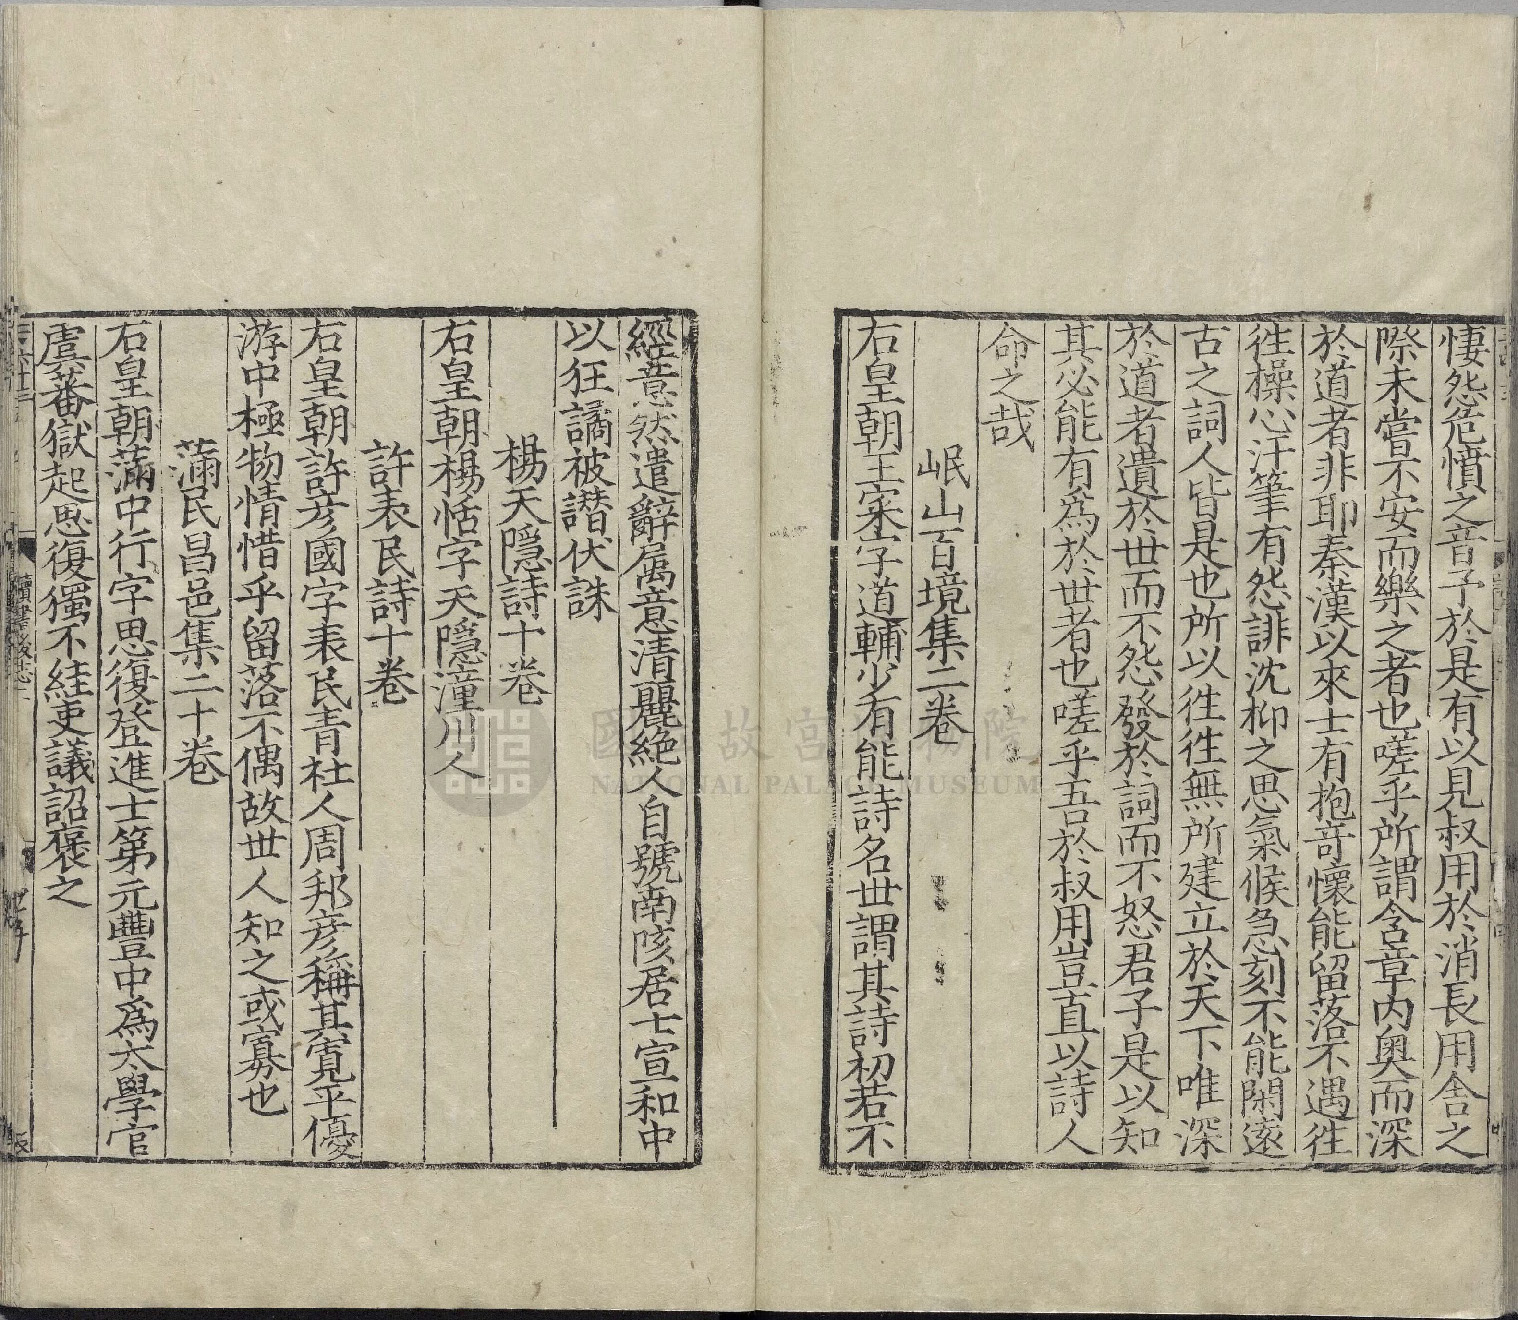 悽怨危憤之音予於是有以見叔用於消長用舍之
際未嘗不安而樂之者也嗟乎所謂含章内奧而深
於道者非耶秦漢以來士有抱竒懷能留落不遇徃
徃橾心汗筆有怨誹沈抑之思氣候急刻不能閑遠
古之詞人皆是也所以徃徃無所建立於天下唯深
於道者遺於世而不怨發於詞而不怒君子是以知
其必能有爲於世者也嗟乎吾於叔用豈直以詩人
命之哉
岷山百境集二卷
右皇朝王寀字道輔少有能詩名世謂其詩初若不
經意然遣辭属意清麗絶人自號南陔居士宣和中
以狂譎被譖伏誅
楊天隱詩十卷
右皇朝楊恬字天隱潼川人
許表民詩十卷
右皇朝許彦國字表民青社人周邦彦稱其寛平優
游中極物情惜乎留落不偶故世人知之或寡也
蒲民昌邑集二十卷
右皇朝蒲中行字思復登進士第元豐中爲太學官
虞蕃獄起思復獨不絓吏議詔襃之
讀書後志二
國立故宮博物院
NATIONAL PALACE MUSEUM